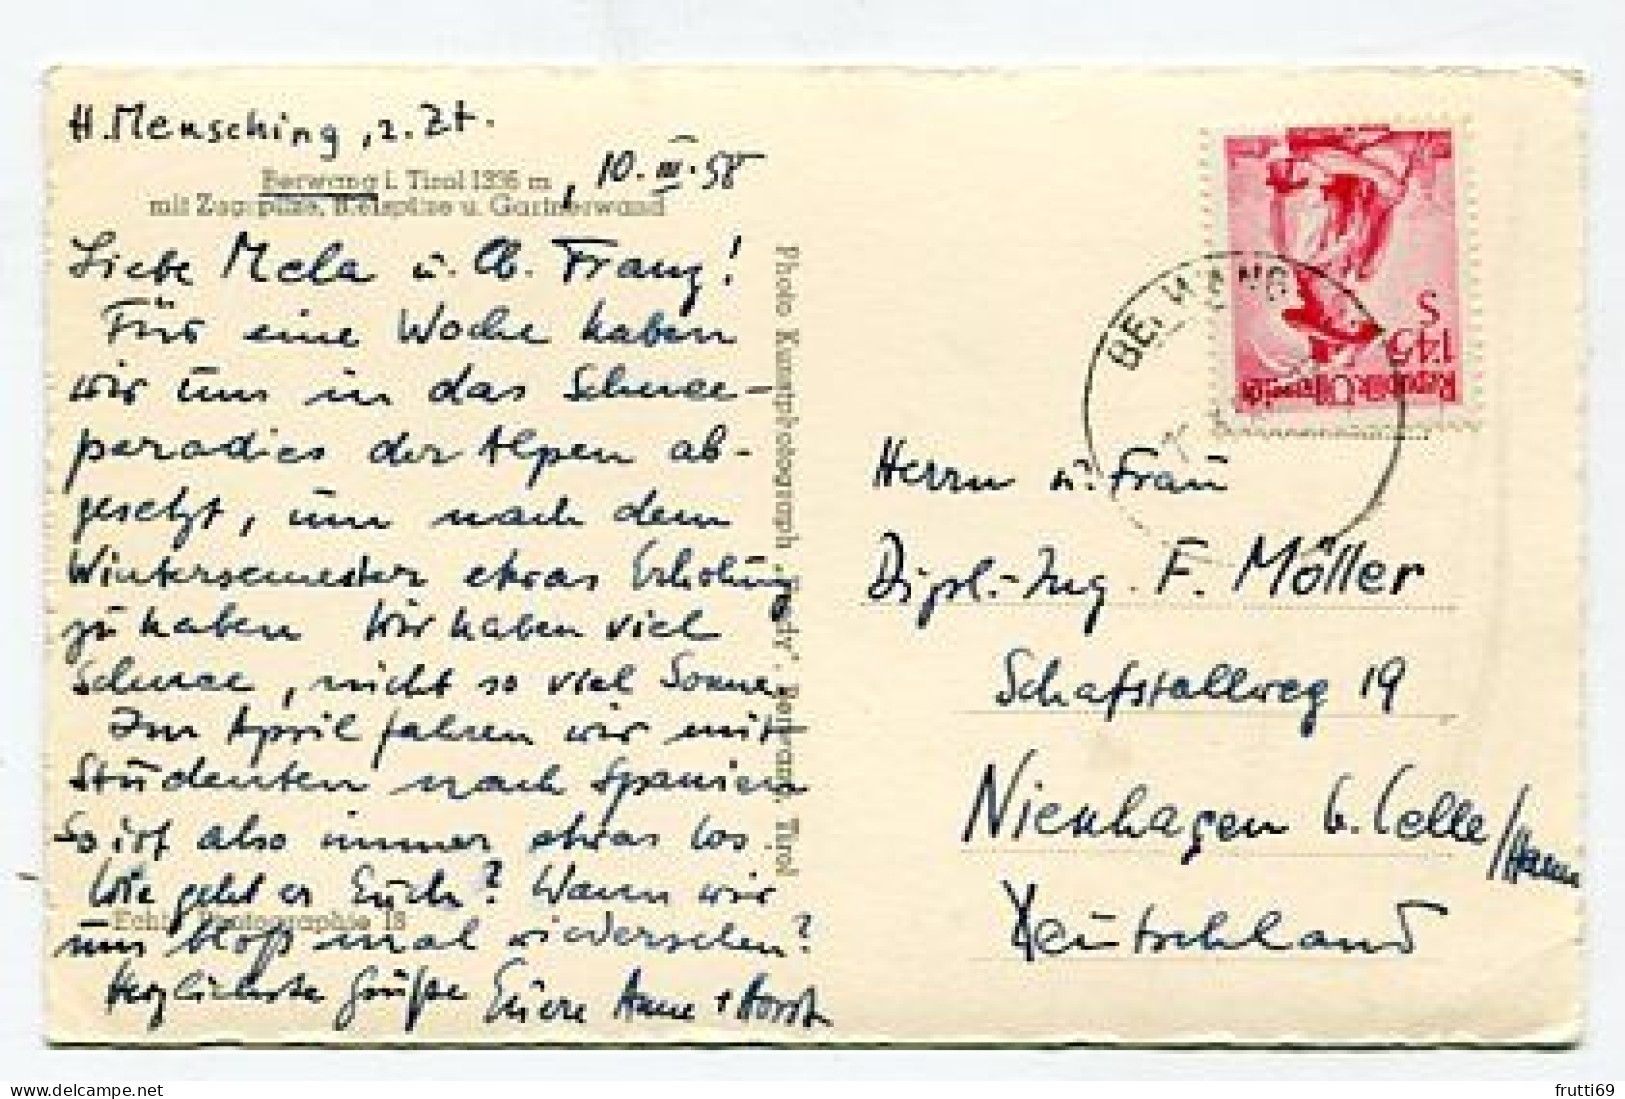 H. Mensching, z. Zt.
Berwang i. Tirol 1336 m, 10. III. 58
mit Zugspitze, Bleispitze u. Gartnerwand
Liebe Mela u. Franz!
Für eine Woche haben
wir uns in das Schnee-
paradies der Alpen ab-
gesetzt, um nach dem
Wintersemester etwas Erholung
zu haben Wir haben viel
Schnee, nicht so viel Sonne.
Im April fahren wir mit
Studenten nach Spanien
So ist also immer etwas los.
Wie geht es Euch? Wann wir
uns bloß mal wiedersehen?
Herzlichste Grüße Euere Anne + Horst
Echte Photographie 18
Photo Kunstphotograph Berwang, Tirol
Republik Österreich
S 1'45
BERWANG
Herrn u. Frau
Dipl.-Ing. F. Möller
Schafstallweg 19
Nienhagen b. Celle/Hann
Deutschland
frutti69